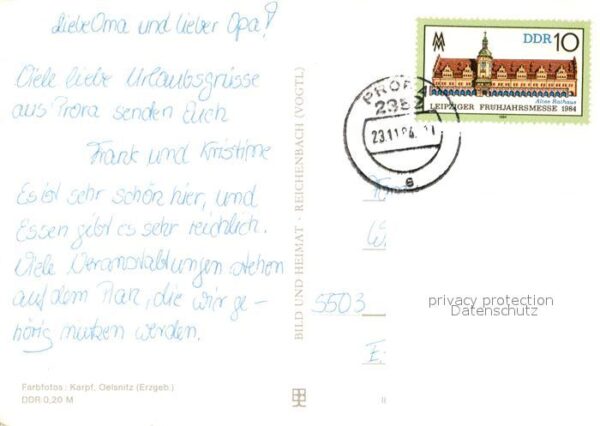 Liebe Oma und lieber Opa!
Viele liebe Urlaubsgrüsse
aus Prora senden Euch
Frank und Kristine
Es ist sehr schön hier, und
Essen gibt es sehr reichlich.
Viele Veranstaltungen stehen
auf dem Plan, die wir ge-
hörig nutzen werden.
Farbfotos: Karpf, Oelsnitz (Erzgeb.)
DDR 0,20 M
BILD UND HEIMAT · REICHENBACH (VOGTL)
DDR 10
Altes Rathaus
LEIPZIGER FRÜHJAHRSMESSE 1984
PRORA
2352
23.11.84
e
5503
privacy protection
Datenschutz